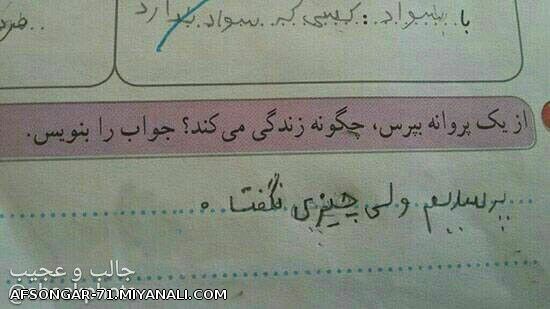 با سواد : کسی که سواد دارد
از یک پروانه بپرس، چگونه زندگی می‌کند؟ جواب را بنویس.
پرسیدیم ولی چیزی نگفت ه
جالب و عجیب
AFSONGAR-71.MIYANALI.COM